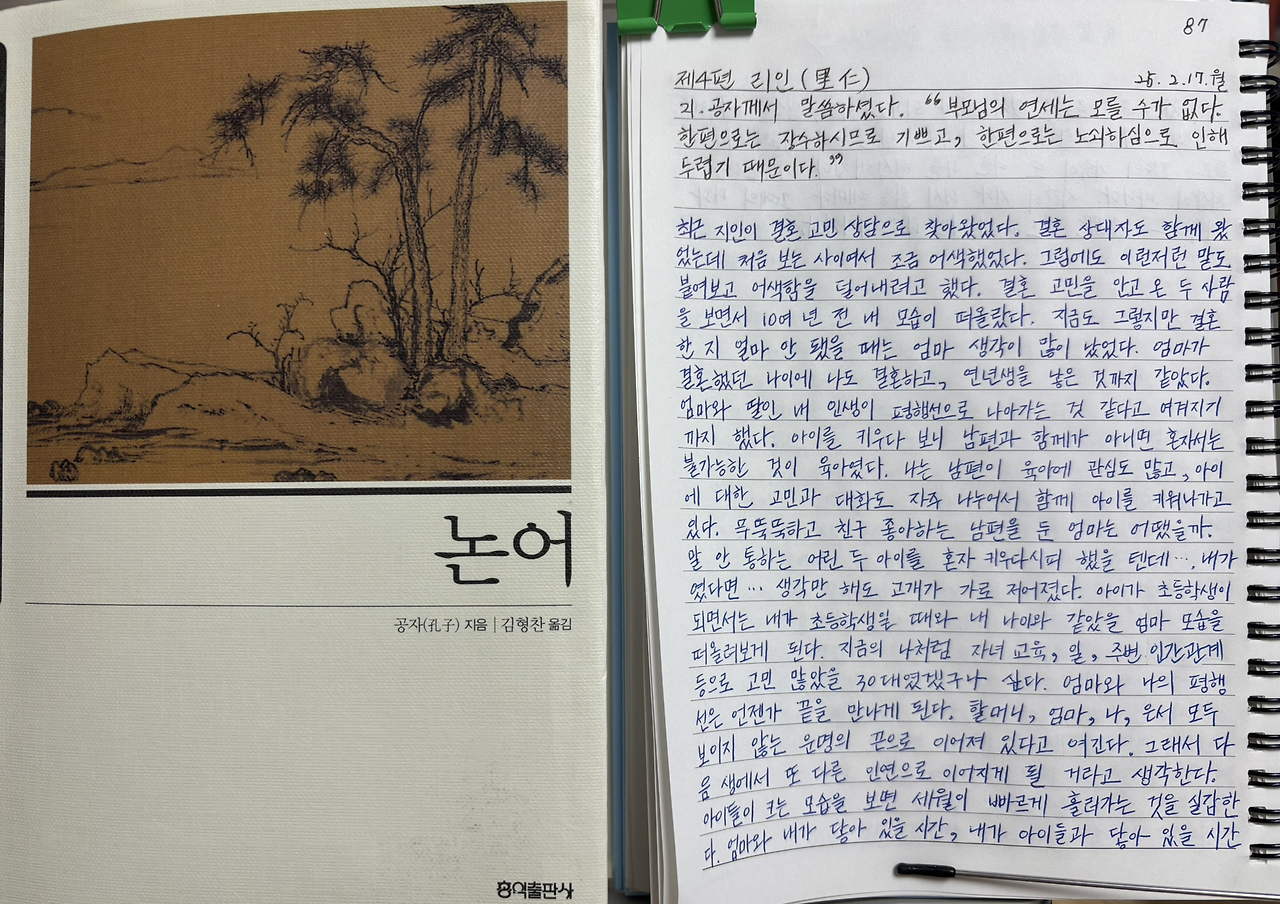 논어
공자(孔子) 지음 | 김형찬 옮김
홍익출판사
87
제4편 리인(里仁) 25. 2. 17. 월
21. 공자께서 말씀하셨다. "부모님의 연세는 모를 수가 없다.
한편으로는 장수하시므로 기쁘고, 한편으로는 노쇠하심으로 인해
두렵기 때문이다."
최근 지인이 결혼 고민 상담으로 찾아왔었다. 결혼 상대자도 함께 왔
었는데 처음 보는 사이여서 조금 어색했었다. 그럼에도 이런저런 말도
붙여보고 어색함을 덜어내려고 했다. 결혼 고민을 안고 온 두 사람
을 보면서 10여 년 전 내 모습이 떠올랐다. 지금도 그렇지만 결혼
한 지 얼마 안 됐을 때는 엄마 생각이 많이 났었다. 엄마가
결혼했던 나이에 나도 결혼하고, 연년생을 낳은 것까지 같았다.
엄마와 딸인 내 인생이 평행선으로 나아가는 것 같다고 여겨지기
까지 했다. 아이를 키우다 보니 남편과 함께가 아니면 혼자서는
불가능한 것이 육아였다. 나는 남편이 육아에 관심도 많고, 아이
에 대한 고민과 대화도 자주 나누어서 함께 아이를 키워나가고
있다. 무뚝뚝하고 친구 좋아하는 남편을 둔 엄마는 어땠을까.
말 안 통하는 어린 두 아이를 혼자 키우다시피 했을 텐데…. 내가
였다면… 생각만 해도 고개가 가로 저어졌다. 아이가 초등학생이
되면서는 내가 초등학생일 때와 내 나이와 같았을 엄마 모습을
떠올려보게 된다. 지금의 나처럼 자녀 교육, 일, 주변 인간관계
등으로 고민 많았을 30대였겠구나 싶다. 엄마와 나의 평행
선은 언젠가 끝을 만나게 된다. 할머니, 엄마, 나, 은서 모두
보이지 않는 운명의 끈으로 이어져 있다고 여긴다. 그래서 다
음 생에서 또 다른 인연으로 이어지게 될 거라고 생각한다.
아이들이 크는 모습을 보면 세월이 빠르게 흘러가는 것을 실감한
다. 엄마와 내가 닿아 있을 시간, 내가 아이들과 닿아 있을 시간